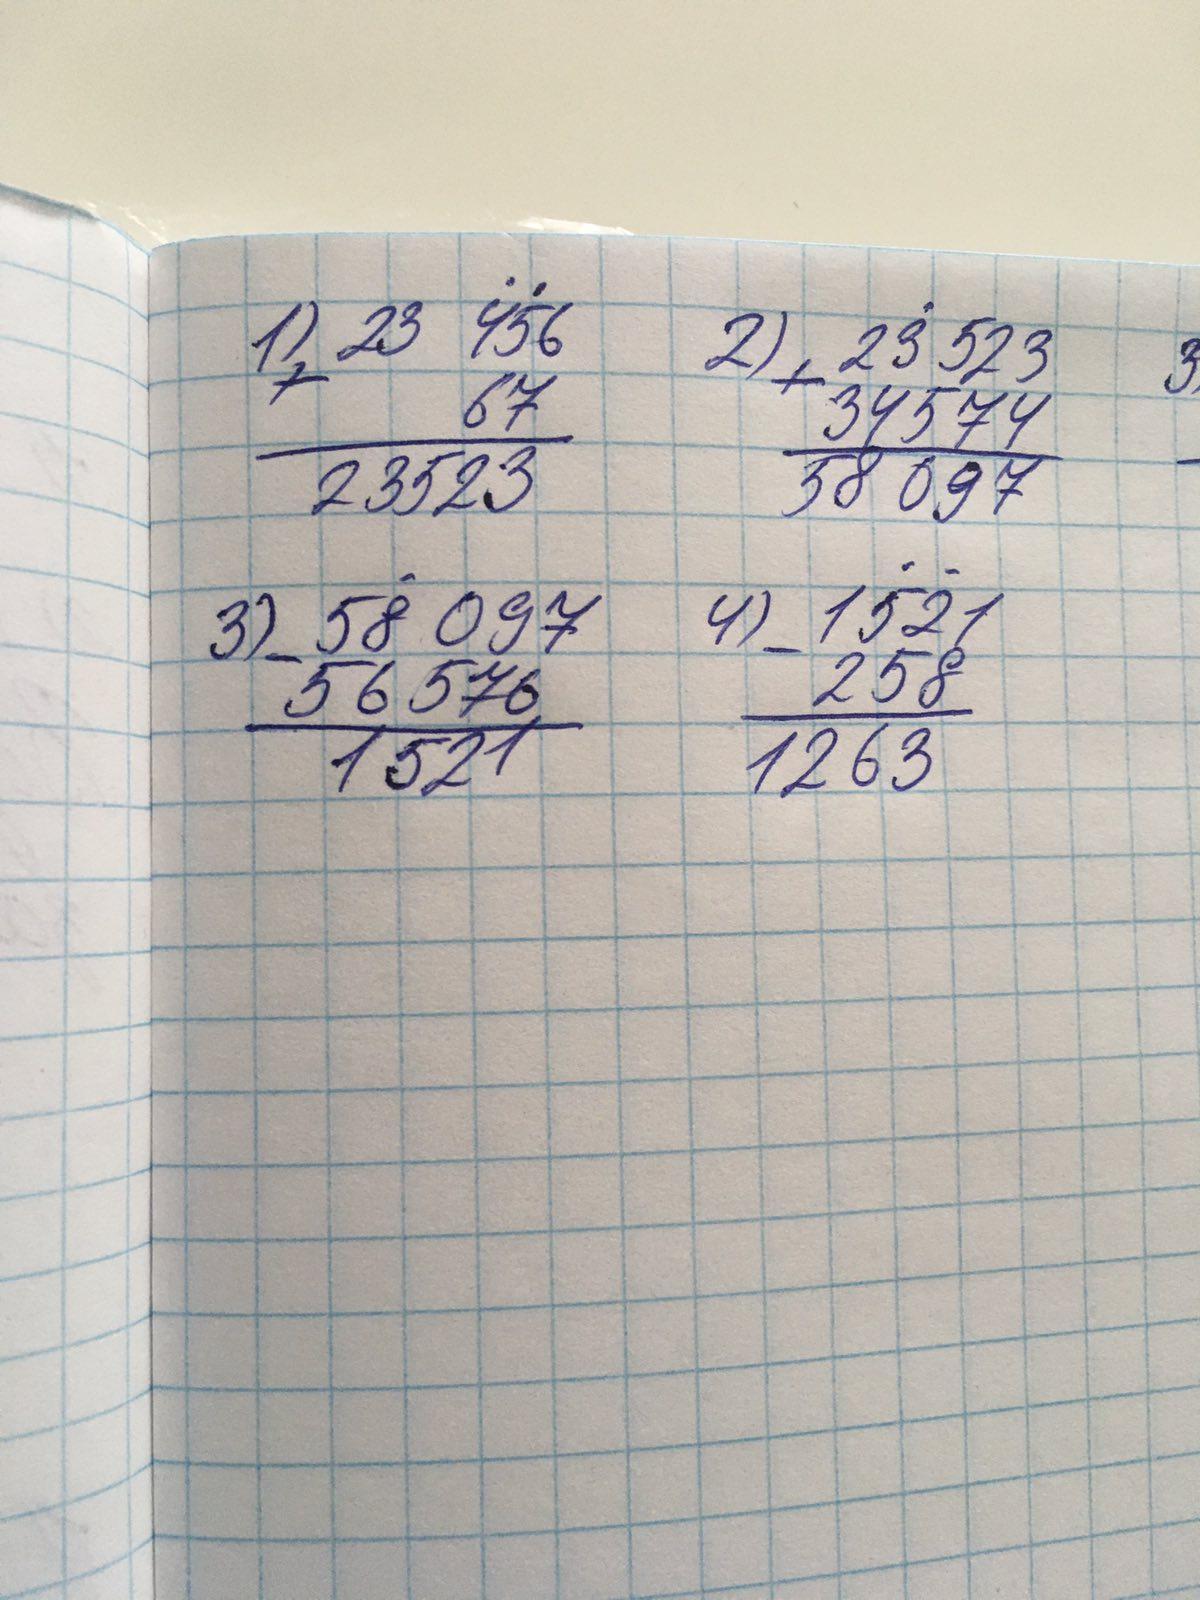 1) 23 456 2) 23 523 3)
+ 67 + 34574
23523 58 097
3) - 58 097 4) - 1521
56 576 258
1 521 1263